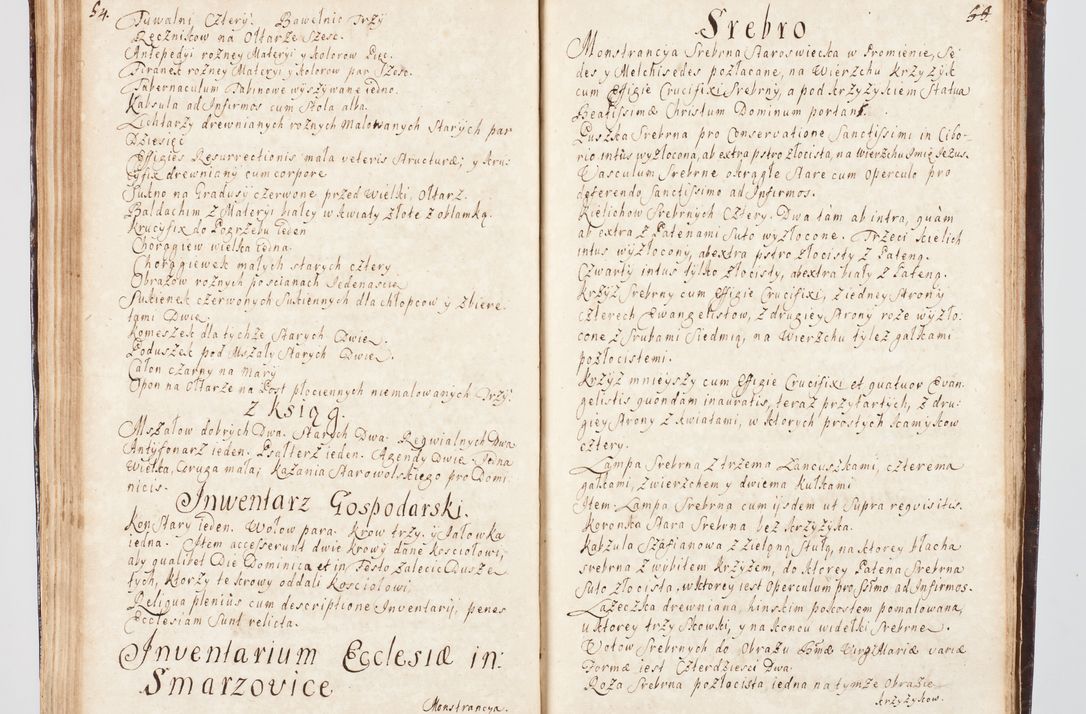 54.
Tuwalni Cztery: Bawełnic Trzy
Ręcznikow na Ołtarze Szesc.
Antepedyi rożney Materyi y kolorow Pięc.
Firanek rożney Materyi y kolorow par Szesc.
Tabernaculum Tabinowe wyszywane iedno.
Kabsula ad Infirmos cum Stola alba.
Lichtarzy drewnianych rożnych Malowanych Starych par
Dziesięc
Effigies Resurrectionis mala veteris Structuræ; y kru-
cifix drewniany cum corpore
Sukno na Gradusy czerwone przed Wielki Ołtarz.
Baldachim z Materyi białey w kwiaty złote z oblamką.
Krucyfix do Pogrzebu ieden
Chorągiew wielka iedna.
Chorągiewek małych starych cztery
Obrazow rożnych po scianach Jedenascie
Sukienek czerwonych Sukiennych dla chłopcow y z biere-
tami Dwie.
Komeszek dla tychże Starych Dwie.
Poduszek pod Mszały Starych Dwie.
Całon czarny na Mary
Opon na Ołtarze na Post płociennych niemalowanych Trzy.
Z Ksiąg.
Mszałow dobrych Dwa. Starych Dwa. Reqwialnych Dwa
Antyfonarz ieden. Psałterz ieden. Agendy Dwie Jedna
Wielka, Druga mała; Kazania Starowolskiego pro Domi-
nicis.
Inwentarz Gospodarski.
Kon Stary ieden. Wołow para. Krow trzy. y Jałowka
iedna. Item accesserunt dwie krowy dane kosciołowi,
aby qualibet Die Dominica et in Festo zalecic Dusze
tych, ktorzy te krowy oddali Kosciołowi,
Reliqua plenius cum descriptione Inventarij, penes
Ecclesiam sunt relicta.
Inventarium Ecclesiæ in
Smarzovice
Monstrancya.
Srebro
Monstrancya Srebrna Staroswiecka w Promienie, Se-
des, y Melchisedes pozłacane, na Wierzchu krzyżyk
cum Effigie Crucifixi Srebrny, a pod krzyżykiem Statua
Beatissimæ Christum Dominum portans.
Puszka Srebrna pro Conservatione Sanctissimi in Cibo-
rio intus wyzłocona, ab extra pstro złocista, na wierzchu Imię Jezus.
Vasculum Srebrne okrągłe Stare cum Operculo pro
deferendo Sanctissimo ad Infirmos.
Kielichow Srebrnych Cztery. Dwa tam ab intra, quàm
ab extra z Patenami Suto wyzłocone. Trzeci kielich
intus wyzłocony, ab extra pstro złocisty z Pateną.
Czwarty intus tylko złocisty, ab extra biały z Pateną.
Krzyż Srebrny cum Effigie Crucifixi, z iedney Strony
czterech Ewangelistow, z drugiey Strony roże wyzło-
cone z Srubami Siedmią, na Wierzchu tyleż gałkami
pozłocistemi.
Krzyż mnieyszy cum Effigie Crucifixi et quatuor Evan-
gelistis quondam inauratis, teraz przytartych, z dru-
giey Strony z kwiatami, w ktorych prostych kamykow
cztery.
Lampa Srebrna z trzema Łancuszkami, czterema
gałkami, z wierzchem y dwiema kulkami
Item Lampa Srebrna cum ijsdem ut Supra requisitis.
Koronka Stara Srebrna bez krzyżyka.
Kabzula Szafianowa z zieloną Stułą, na ktorey blacha
srebrna z wybitem krzyżem, do ktorey Patena Srebrna
Suto złocista, w ktorey iest Operculum pro SSmo ad Infirmos.
Lażeczka drewniana, hinskim pokostem pomalowana,
u ktorey trzy Skowki, y na koncu widełki Srebrne.
Wotow Srebrnych do Obrazu SSmæ Virg: Mariæ variæ
Formæ iest Czterdziesci Dwa.
Roża Srebrna pozłocista iedna na tymże Obrazie
krzyżykow.